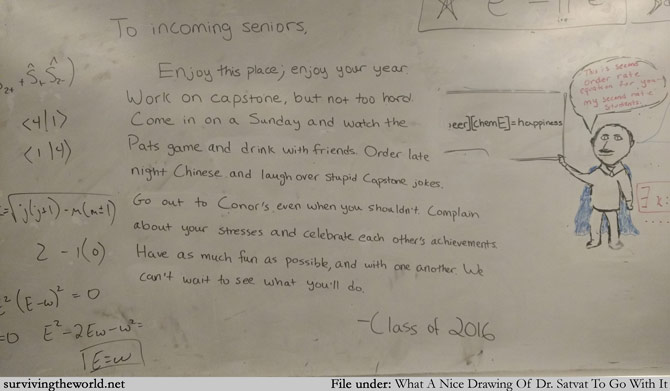 To incoming seniors,
Enjoy this place; enjoy your year.
Work on capstone, but not too hard.
Come in on a Sunday and watch the
Pats game and drink with friends. Order late
night Chinese and laugh over stupid Capstone jokes.
Go out to Conor's even when you shouldn't. Complain
about your stresses and celebrate each other's achievements.
Have as much fun as possible, and with one another. We
can't wait to see what you'll do.
-Class of 2016
⟨4|1⟩
⟨1|4⟩
2 - 1(0)
²(E-w)² = 0
=0 E² - 2Ew - w² =
E=w
eer][chemE]=happiness
This is second
order rate
equation for you
my second rate
students.
survivingtheworld.net
File under: What A Nice Drawing Of Dr. Satvat To Go With It